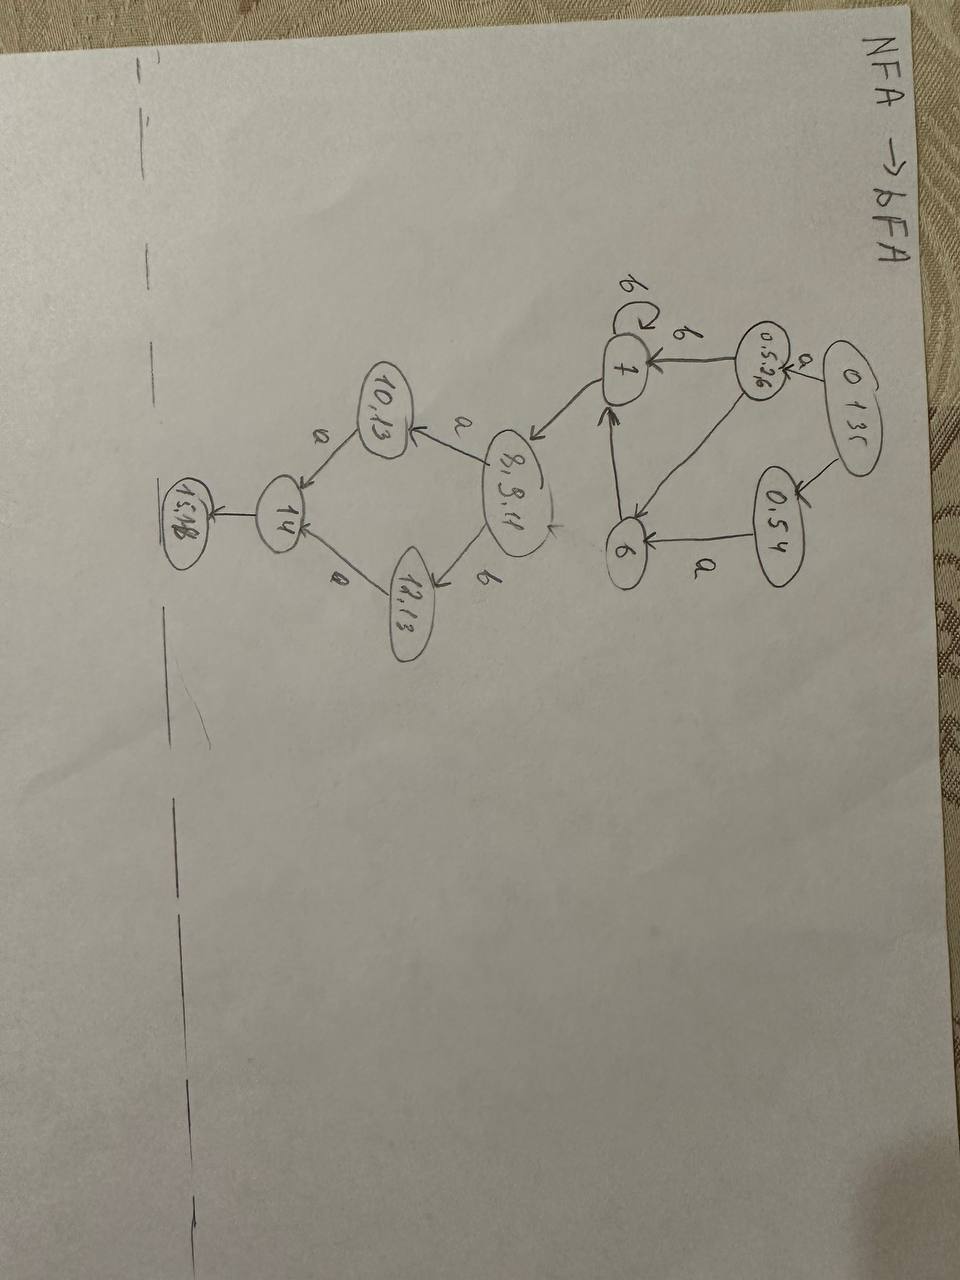 NFA → DFA
0 1 3 5
a
0.5.2,6
0.5 4
b
a
b
7
6
8, 9, 11
a
b
10, 13
12, 13
a
a
14
15, 18